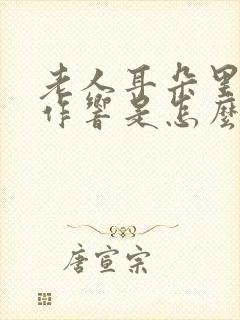 老人耳朵里
作響是怎麼
唐宣宗